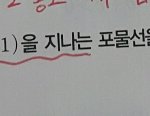 1)을 지나는 포물선을